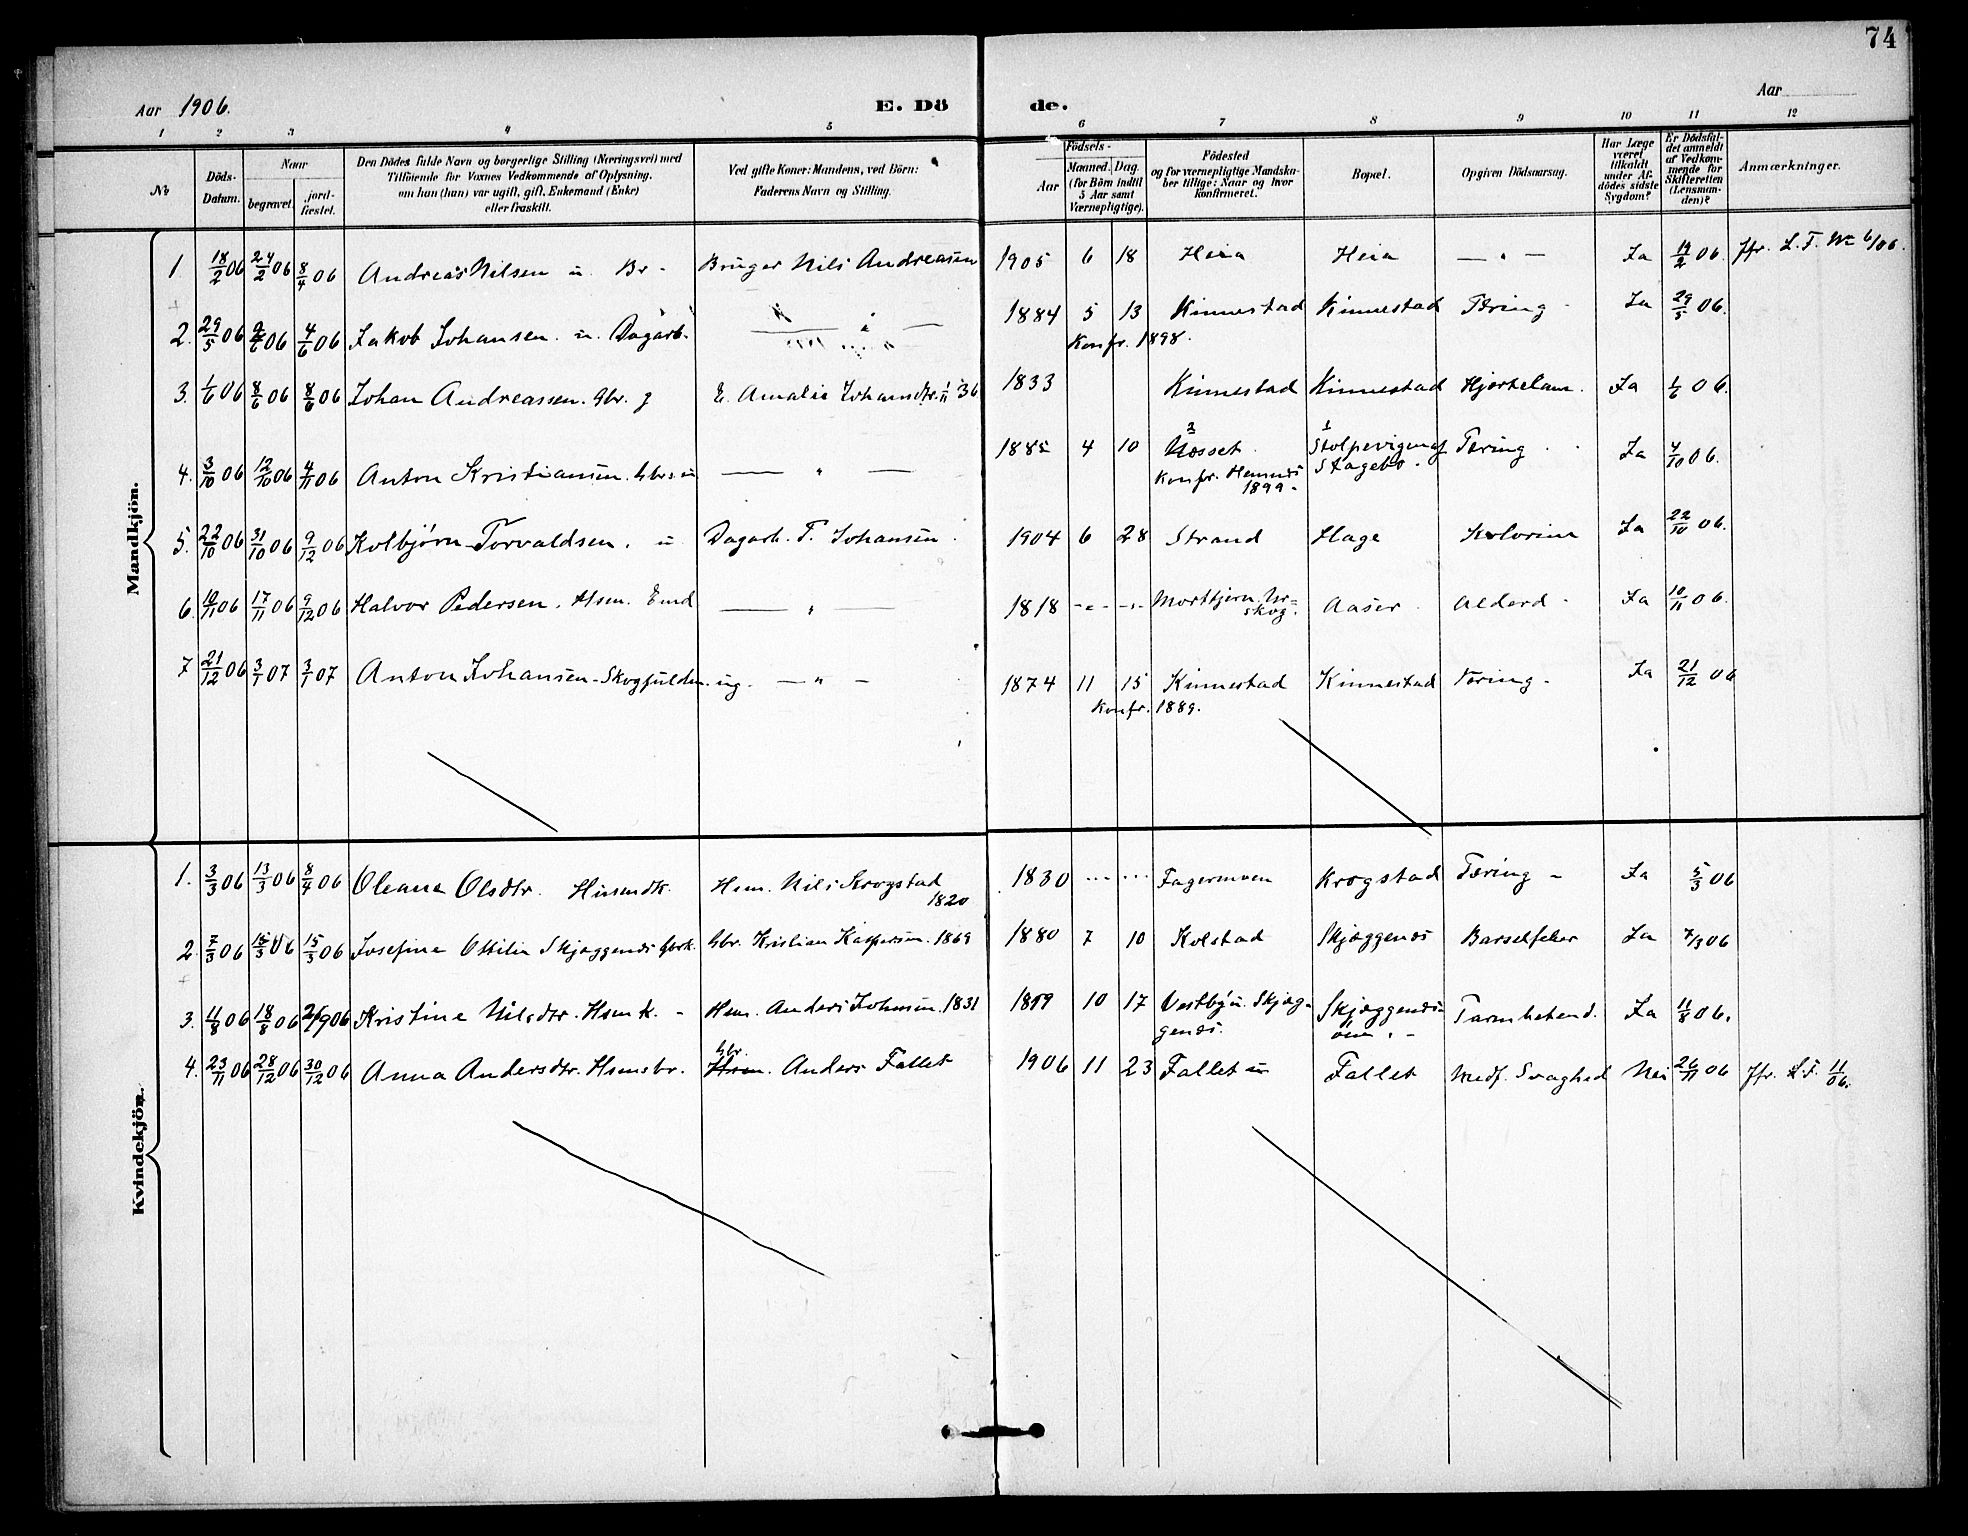 74
Aar 1906.
E. Dö de.
Aar
1 2 3 4 5 6 7 8 9 10 11 12
No
Döds-Datum.
Naar
begravet.
jord-fæstet.
Den Dödes fulde Navn og borgerlige Stilling (Næringsvei) med
Tilföiende for Voxnes Vedkommende af Oplysning,
om han (hun) var ugift, gift, Enkemand (Enke)
eller fraskilt.
Ved gifte Koner: Mandens, ved Börn:
Faderens Navn og Stilling.
Födsels-
Aar
Maaned. Dag.
(for Börn indtil
5 Aar samt
Værnepligtige).
Födested
og for værnepligtige Mandska-
ber tillige: Naar og hvor
konfirmeret.
Bopæl.
Opgiven Dödsaarsag.
Har Læge
været
tilkaldt
under Af-
dödes sidste
Sygdom?
Er Dödsfal-
det anmeldt
af Vedkom-
mende for
Skifteretten
(Lensman-
den)?
Anmærkninger.
Mandkjön.
1. 18/2 06 24/2 06 8/4 06 Andreas Nilsen u. Br - Bruger Nils Andreasen 1905 6 18 Heia Heia — " — Ja 19/2 06. Jfr. L. F. No 6/06.
2. 29/5 06 2/6 06 4/6 06 Jakob Johansen. u. Dagarb. — " — 1884 5 13 Kinnestad Kinnestad Tæring - Ja 29/5 06.
Konfr. 1898.
3. 1/6 06 8/6 06 8/6 06 Johan Andreassen. Gbr. g E. Amalie Johansdtr. 1/11 36 1833 Kinnestad Kinnestad Hjertelam. Ja 1/6 06.
4. 3/10 06 12/10 06 4/11 06 Anton Kristiansen. Gbrs. u — " — 1885 4 10 Næsset. Stolpevigen af Tæring. Ja 4/10 06.
Konfr. Hemnes Stageb.
1899.
5. 22/10 06 31/10 06 9/12 06 Kolbjørn Torvaldsen. u Dagarb. T. Johansen. 1904 6 28 Strand Hage Kolorina Ja 22/10 06.
6. 10/11 06 17/11 06 9/12 06 Halvor Pedersen. Hsm. Emd — " — 1818 - " - - " - Mortkjern. Ur-
skog. Aaser. Alderd - Ja 10/11 06.
7 21/12 06 3/1 07 3/1 07 Anton Johansen - Skogfuldm. ug. — " — 1874 11 15 Kinnestad Kinnestad Tæring - Ja 21/12 06
Konfr. 1889.
Kvindekjön.
1. 3/3 06 13/3 06 8/4 06 Oleana Olsdtr. Husmdk. Hsm. Nils Krogstad 1830 ... ... Fagermoen Krogstad Tæring - Ja 5/3 06
1820
2. 7/3 06 15/3 06 15/3 06 Josefine Ottilie Skjæggenæs Gbrk. Gbr. Kristian Kaspersen. 1869 1880 7 10 Kolstad Skjæggenæs Barselfeber Ja 7/3 06
3. 11/8 06 18/8 06 2/9 06 Kristine Nilsdtr. Hsmk. - Hsm. Anders Johnsen. 1831 1859 10 17 Vestby u. Skjæg- Skjæggenæs- Tarmbetend. Ja 11/8 06.
genæs. öen. -
4. 23/11 06 28/12 06 30/12 06 Anna Andersdtr. Hsmsbr. Hsm. Gbr. Anders Fallet 1906 11 23 Fallet Fallet Medf. Svaghed Nei 26/11 06 Jfr. L. F. 11/06.